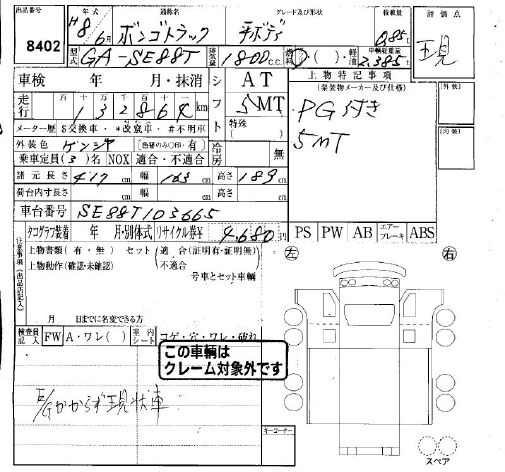 出品番号 8402
年式 H8年/6月
通称名 ボンゴトラック
グレード及び形状 平ボディ
積載量 0.85t
評価点 現
型式 GA-SE88T
排気量 1800 C.C.
燃料 ・( )・軽油
車輌総重量 2.385t
車検 年 月・抹消
走行 十 万 千 百 十 km
1 3 2 8 6 4
シフト AT 5MT 特殊( )
上物特記事項
(架装物メーカー及び仕様)
PG付き
5MT
(外装)
(内装)
メーター歴 $交換車・*改竄車・#不明車
外装色 ゲンショク (色替のみ○印・有)
冷房 無
乗車定員(3)名 NOX 適合・不適合
諸元長さ 417cm 幅 163cm 高さ 189cm
荷台内寸長さ cm 幅 cm 高さ cm
車台番号 SE88T103665
タコグラフ装着 年 月・別体式 リサイクル券¥ 4680円
PS PW AB エアーブレーキ ABS
注意事項(出品店記入)
上物書類(有・無) セット 適合(証明有・証明無)
上物動作(確認・未確認) 不適合
号車とセット車輌
月 日までに名変できる方
左 右
検査員記入 FW A・ワレ( ) 室内シート コゲ・穴・ワレ・破れ
この車輌は
クレーム対象外です
E/Gかからず現状車
キーコーナー
スペア